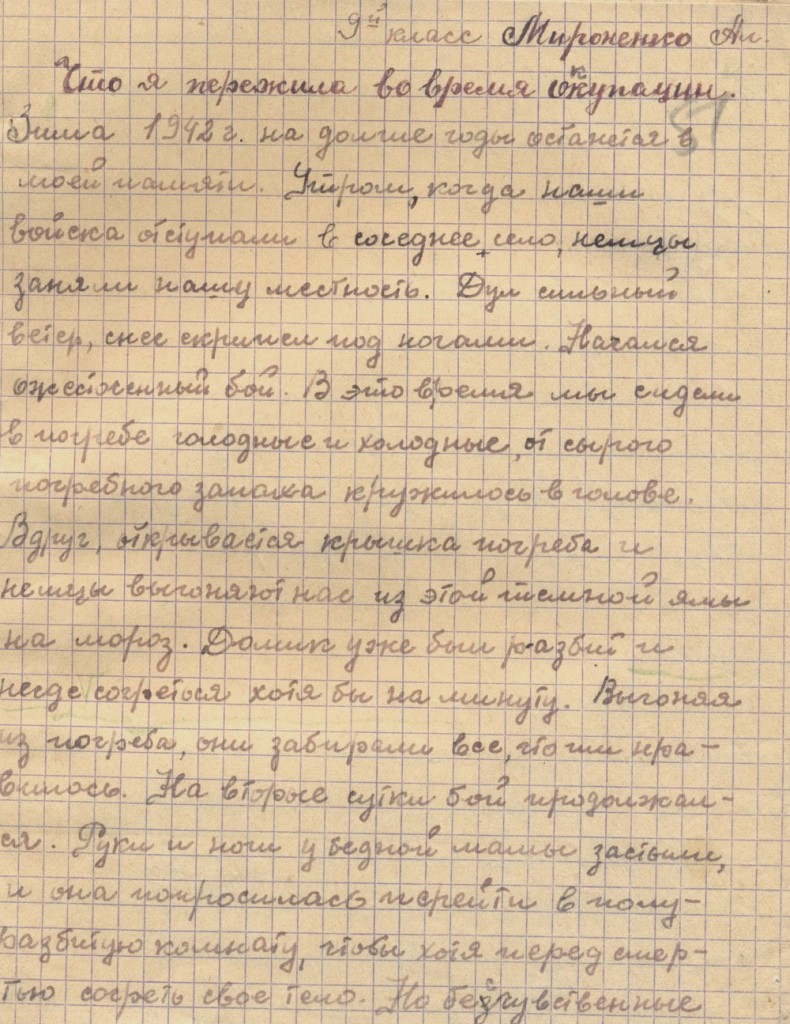 9ый класс Мироненко Ал.
Что я пережила во время оккупации.
Зима 1942 г. на долгие годы останется в
моей памяти. Утром, когда наши
войска отступали в соседнее село, немцы
заняли нашу местность. Дул сильный
ветер, снег скрипел под ногами. Начался
ожесточенный бой. В это время мы сидели
в погребе голодные и холодные, от сырого
погребного запаха кружилось в голове.
Вдруг, открывается крышка погреба и
немцы выгоняют нас из этой темной ямы
на мороз. Домик уже был разбит и
негде согреться хотя бы на минуту. Выгоняя
из погреба, они забирали все, что им нра-
вилось. На вторые сутки бой продолжал-
ся. Руки и ноги у бедной мамы застыли,
и она попросилась перейти в полу-
разбитую комнату, чтобы хотя перед смер-
тью согреть свое тело. Но бесчувственные